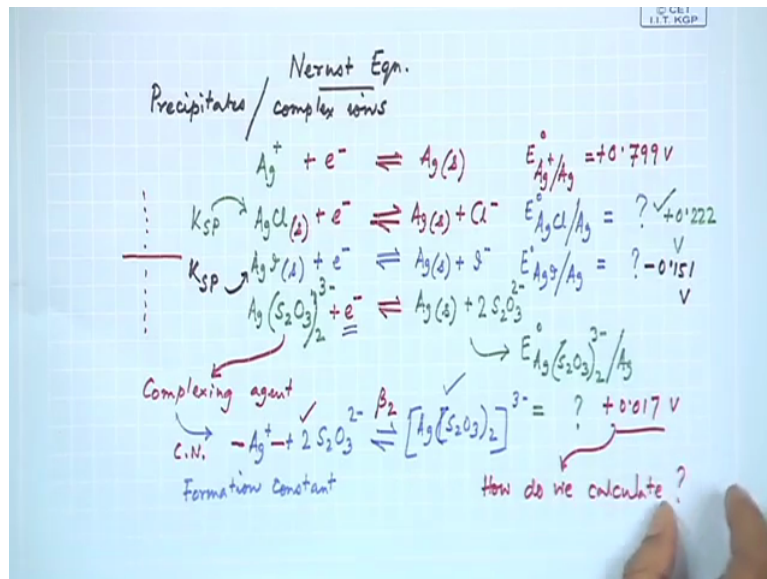 © CET
I.I.T. KGP
Nernst Eqn.
Precipitates / complex ions
Ag⁺ + e⁻ ⇌ Ag(s) E°Ag⁺/Ag = +0.799 V
Ksp AgCl(s) + e⁻ ⇌ Ag(s) + Cl⁻ E°AgCl/Ag = ? ✓ +0.222 V
Ksp AgI(s) + e⁻ ⇌ Ag(s) + I⁻ E°AgI/Ag = ? -0.151 V
Ag(S₂O₃)₂³⁻ + e⁻ ⇌ Ag(s) + 2S₂O₃²⁻
E°Ag(S₂O₃)₂³⁻/Ag
Complexing agent
C.N. -Ag⁺- + 2 S₂O₃²⁻ β₂ ⇌ [Ag(S₂O₃)₂]³⁻ = ? +0.017 V
Formation Constant
How do we calculate ?